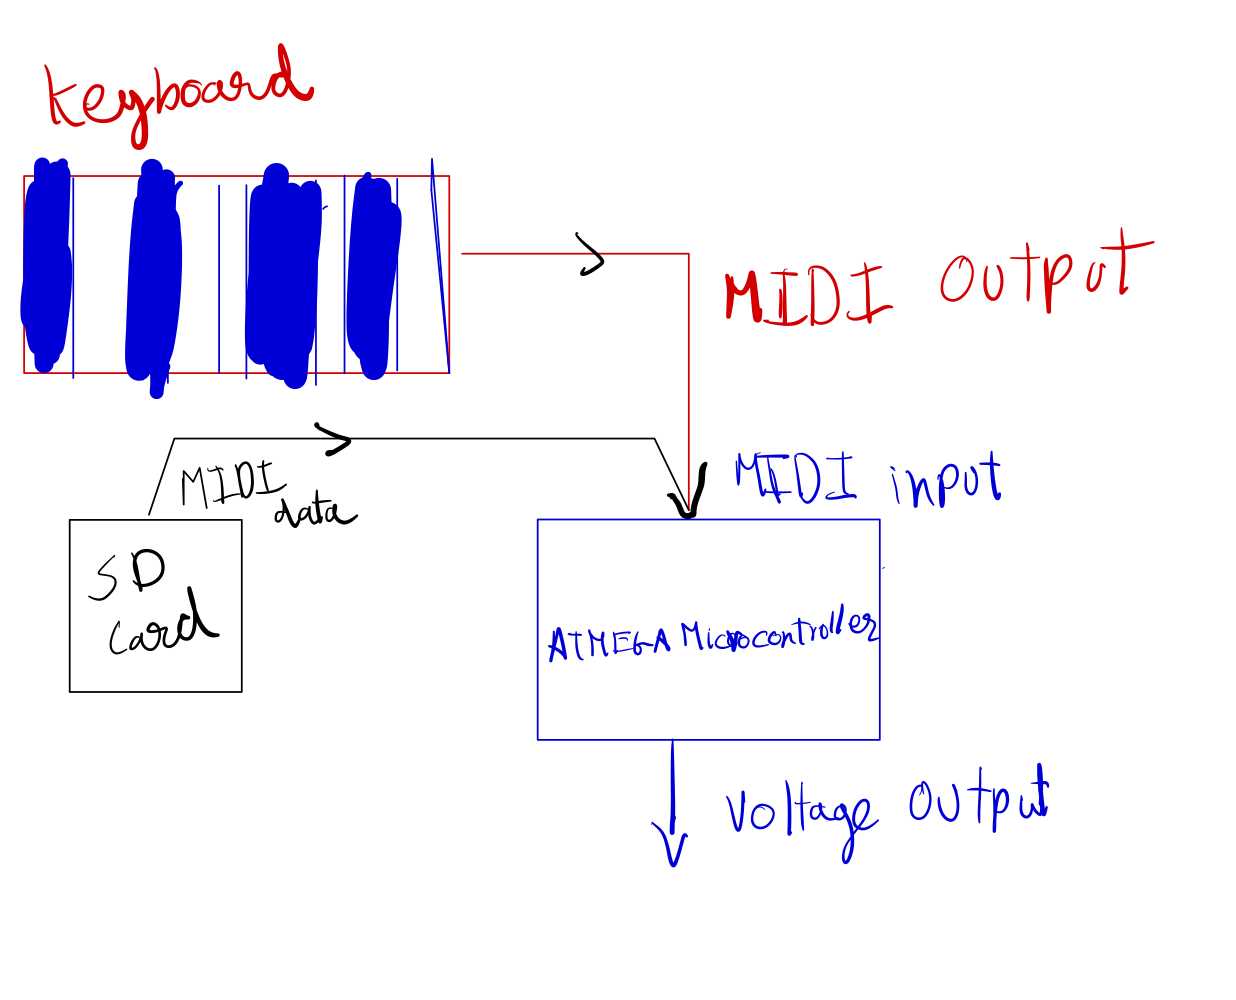 keyboard
MIDI Output
MIDI
data
MIDI input
SD
Card
ATMEGA Microcontroller
Voltage Output